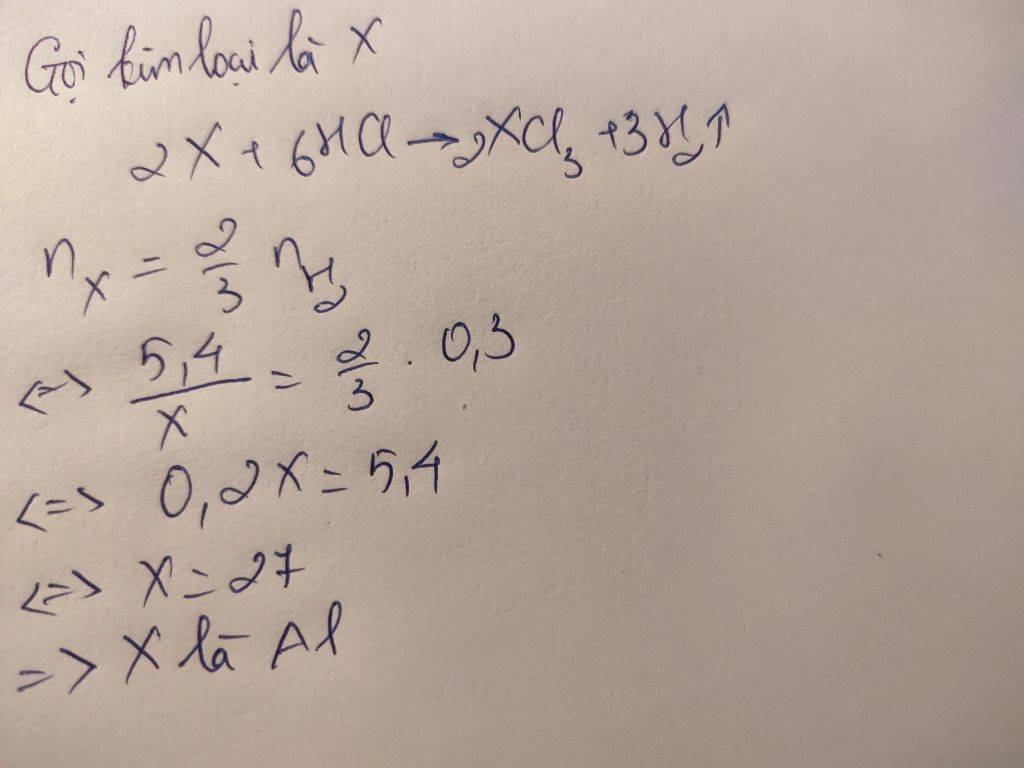 Gọi kim loại là X
2X + 6HCl → 2XCl₃ + 3H₂↑
nₓ = 2/3 n_H₂
<=> 5,4/X = 2/3 . 0,3
<=> 0,2X = 5,4
<=> X = 27
=> X là Al